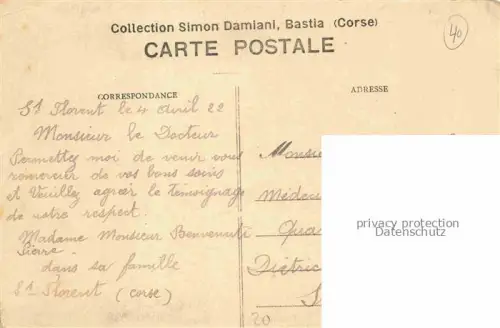 Collection Simon Damiani, Bastia (Corse)
CARTE POSTALE
40
CORRESPONDANCE
St Florent le 4 avril 22
Monsieur le Docteur
Permettez moi de venir vous
remercier de vos bons soins
et Veuillez agréer le témoignage
de notre respect.
Madame Monsieur Benvenuti
Pierre -
dans sa famille
St Florent (Corse)
ADRESSE
Monsieu
Médec
Qua
Dietric
20
privacy protection
Datenschutz